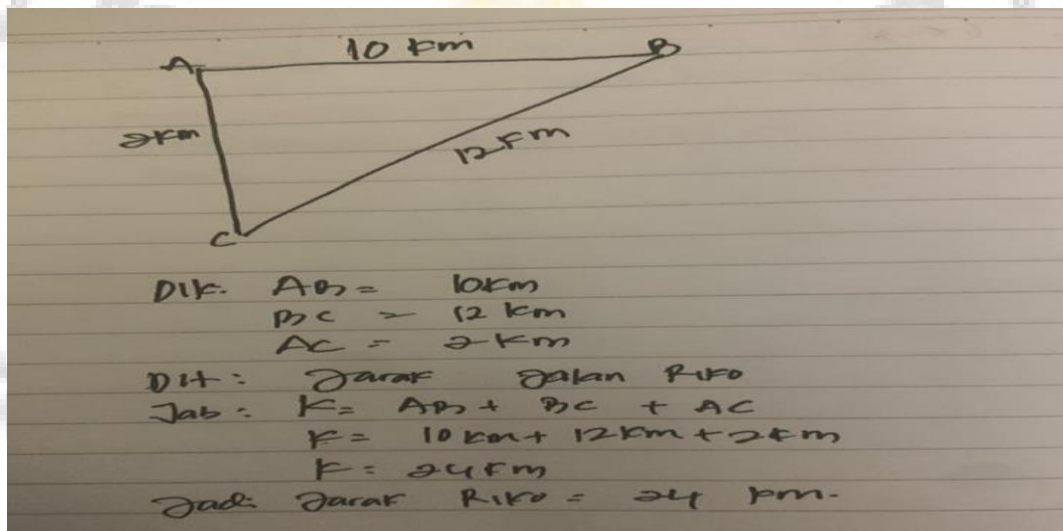 10 km
A B
2km
12 km
C
Dik. AB = 10km
BC = 12 km
AC = 2 km
Dit : Jarak Jalan Riko
Jab : K = AB + BC + AC
K = 10 km + 12 km + 2 km
K = 24 km
Jadi Jarak Riko = 24 km.